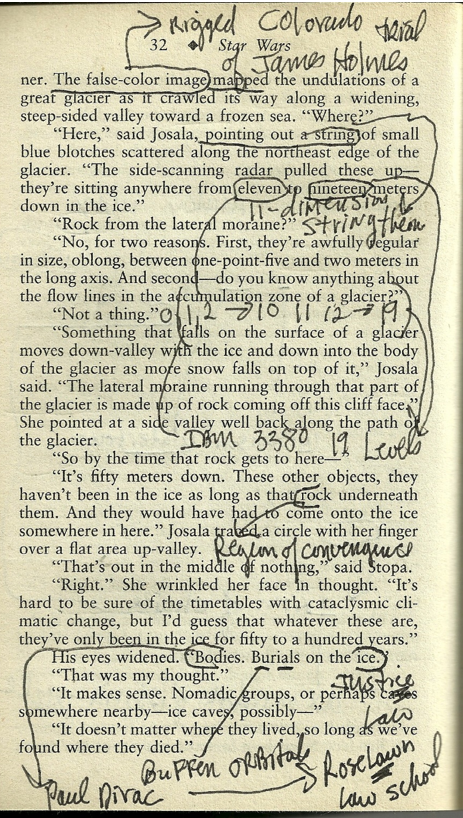 Rigged Colorado trial
32 ◆ Star Wars
of James Holmes
ner. The false-color image mapped the undulations of a
great glacier as it crawled its way along a widening,
steep-sided valley toward a frozen sea. “Where?”
“Here,” said Josala, pointing out a string of small
blue blotches scattered along the northeast edge of the
glacier. “The side-scanning radar pulled these up—
they’re sitting anywhere from eleven to nineteen meters
down in the ice.”
11-dimension
String
“Rock from the lateral moraine?”
“No, for two reasons. First, they’re awfully regular
in size, oblong, between one-point-five and two meters in
the long axis. And second—do you know anything about
the flow lines in the accumulation zone of a glacier?”
“Not a thing.”
0 1, 2 → 10 11 12 → 19
“Something that falls on the surface of a glacier
moves down-valley with the ice and down into the body
of the glacier as more snow falls on top of it,” Josala
said. “The lateral moraine running through that part of
the glacier is made up of rock coming off this cliff face.”
She pointed at a side valley well back along the path of
the glacier.
IBM 3380 19 Levels
“So by the time that rock gets to here—”
“It’s fifty meters down. These other objects, they
haven’t been in the ice as long as that rock underneath
them. And they would have had to come onto the ice
somewhere in here.” Josala traced a circle with her finger
over a flat area up-valley.
Region of convergence
“That’s out in the middle of nothing,” said Stopa.
“Right.” She wrinkled her face in thought. “It’s
hard to be sure of the timetables with cataclysmic cli-
matic change, but I’d guess that whatever these are,
they’ve only been in the ice for fifty to a hundred years.”
His eyes widened. “Bodies. Burials on the ice.”
“That was my thought.”
Justice
“It makes sense. Nomadic groups, or perhaps caves
somewhere nearby—ice caves, possibly—”
Law
“It doesn’t matter where they lived, so long as we’ve
found where they died.”
Roselawn
Paul Dirac
law school